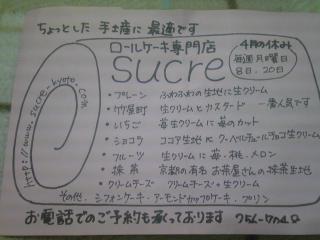 ちょっとした 手土産に 最適です
ロールケーキ専門店
sucre
4月の休み
毎週月曜日
8日、20日
http://www.sucre-kyoto.com
・プレーン ふわふわの生地に生クリーム
・竹屋町 生クリームとカスタード 一番人気です
・いちご 苺生クリームに苺のカット
・ショコラ ココア生地にクーベルチュールチョコ生クリーム
・フルーツ 生クリームに苺・桃・メロン
・抹茶 京都の有名お茶屋さんの抹茶生地
・クリームチーズ クリームチーズ+生クリーム
その他、シフォンケーキ・アーモンドカップケーキ・プリン
お電話でのご予約も承っております